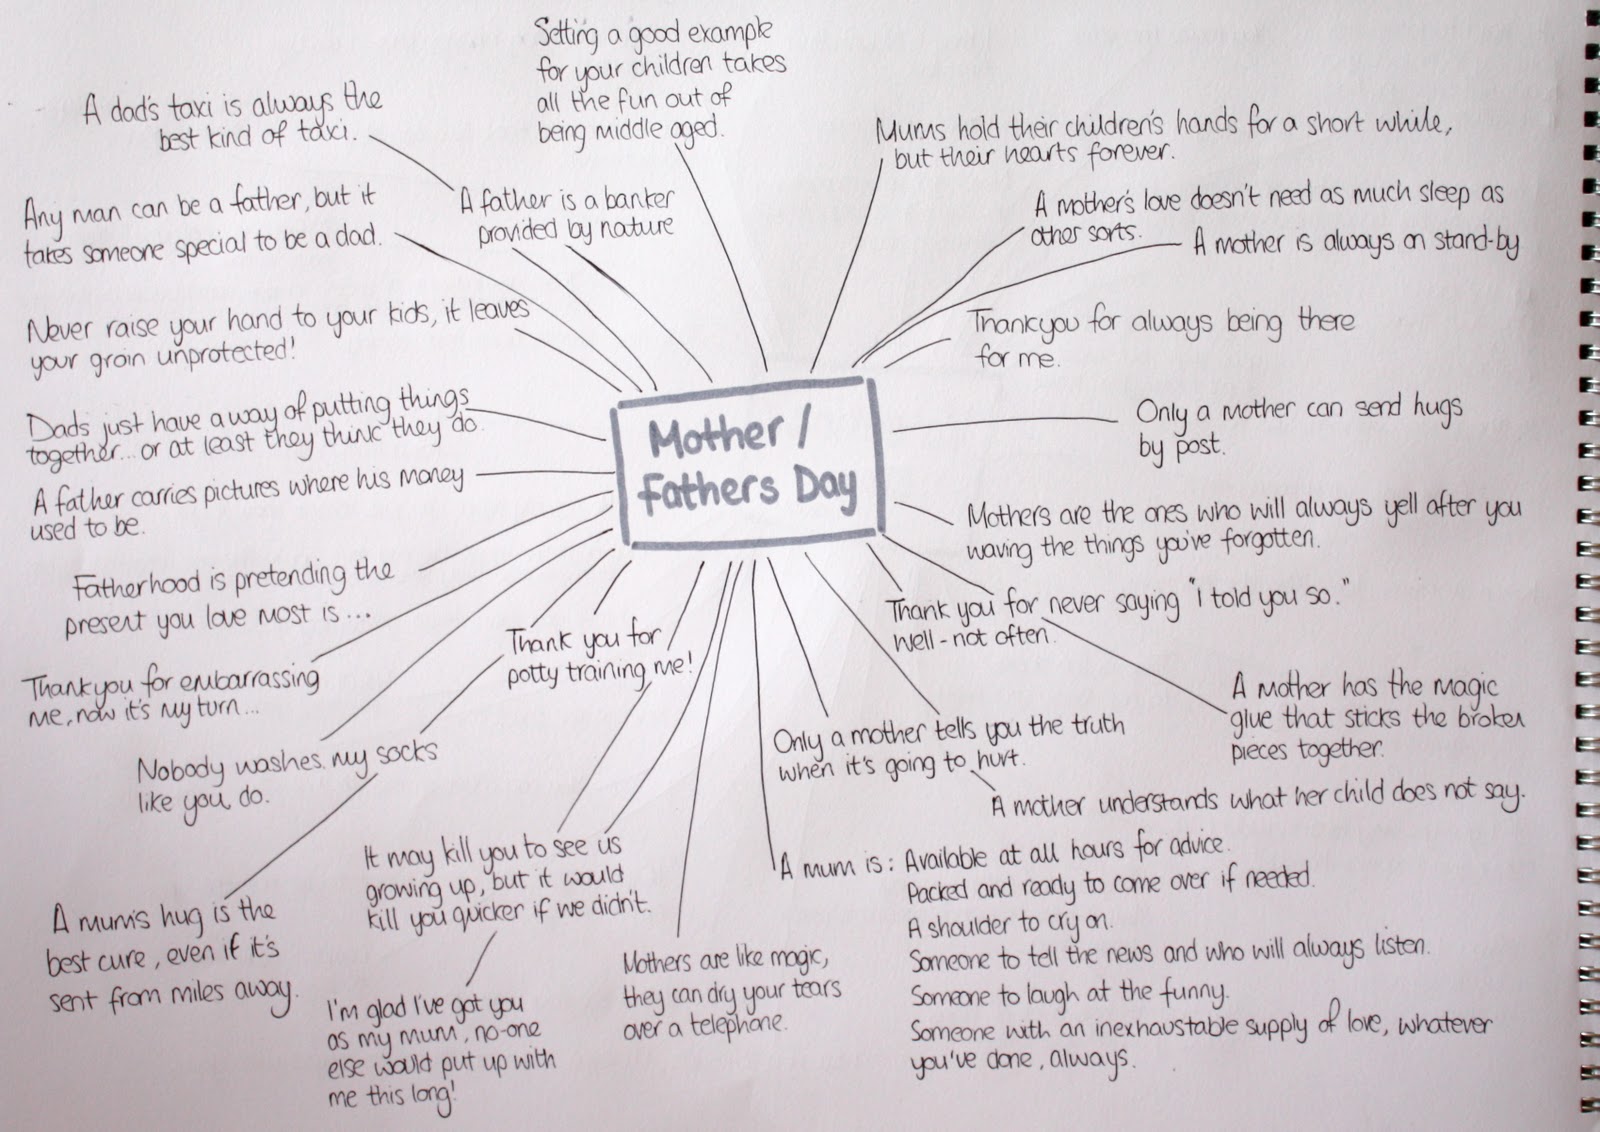 Setting a good example
for your children takes
all the fun out of
being middle aged.
A dad's taxi is always the
best kind of taxi.
Mums hold their children's hands for a short while,
but their hearts forever.
Any man can be a father, but it
takes someone special to be a dad.
A father is a banker
provided by nature
A mother's love doesn't need as much sleep as
other sorts.
A mother is always on stand-by
Never raise your hand to your kids, it leaves
your groin unprotected!
Thankyou for always being there
for me.
Dads just have a way of putting things
together... or at least they think they do.
Mother /
Fathers Day
Only a mother can send hugs
by post.
A father carries pictures where his money
used to be.
Mothers are the ones who will always yell after you
waving the things you've forgotten.
Fatherhood is pretending the
present you love most is...
Thank you for
potty training me!
Thank you for never saying "i told you so."
Well - not often.
Thankyou for embarrassing
me, now it's my turn...
A mother has the magic
glue that sticks the broken
pieces together.
Nobody washes my socks
like you do.
Only a mother tells you the truth
when it's going to hurt.
A mother understands what her child does not say.
It may kill you to see us
growing up, but it would
kill you quicker if we didn't.
A mum is: Available at all hours for advice.
Packed and ready to come over if needed.
A shoulder to cry on.
Someone to tell the news and who will always listen.
Someone to laugh at the funny.
Someone with an inexhaustable supply of love, whatever
you've done, always.
A mum's hug is the
best cure, even if it's
sent from miles away.
Mothers are like magic,
they can dry your tears
over a telephone.
I'm glad I've got you
as my mum, no-one
else would put up with
me this long!